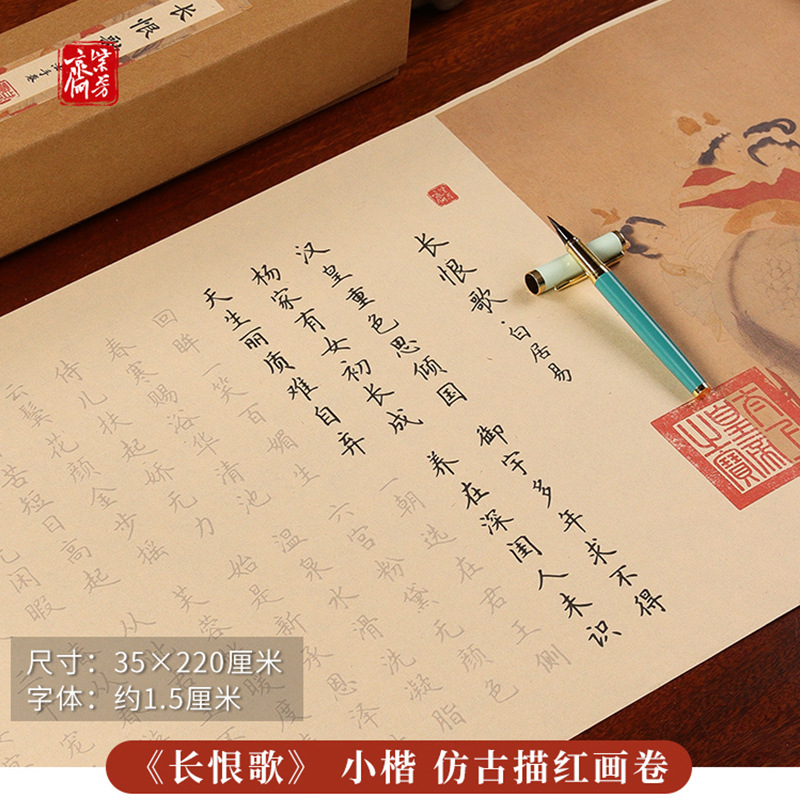 长恨歌
长恨歌·白居易
汉皇重色思倾国 御宇多年求不得
杨家有女初长成 养在深闺人未识
天生丽质难自弃 一朝选在君王侧
回眸一笑百媚生 六宫粉黛无颜色
春寒赐浴华清池 温泉水滑洗凝脂
侍儿扶起娇无力 始是新承恩泽
云鬓花颜金步摇 芙蓉 暖 度
苦短日高起 从
无闲暇
宠
太上皇帝之寶
尺寸：35×220厘米
字体：约1.5厘米
《长恨歌》 小楷 仿古描红画卷